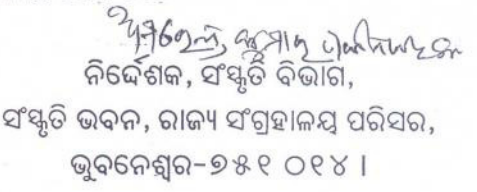 ନିର୍ଦ୍ଦେଶକ, ସଂସ୍କୃତି ବିଭାଗ,
ସଂସ୍କୃତି ଭବନ, ରାଜ୍ୟ ସଂଗ୍ରହାଳୟ ପରିସର,
ଭୁବନେଶ୍ୱର-୭୫୧ ୦୧୪ ।